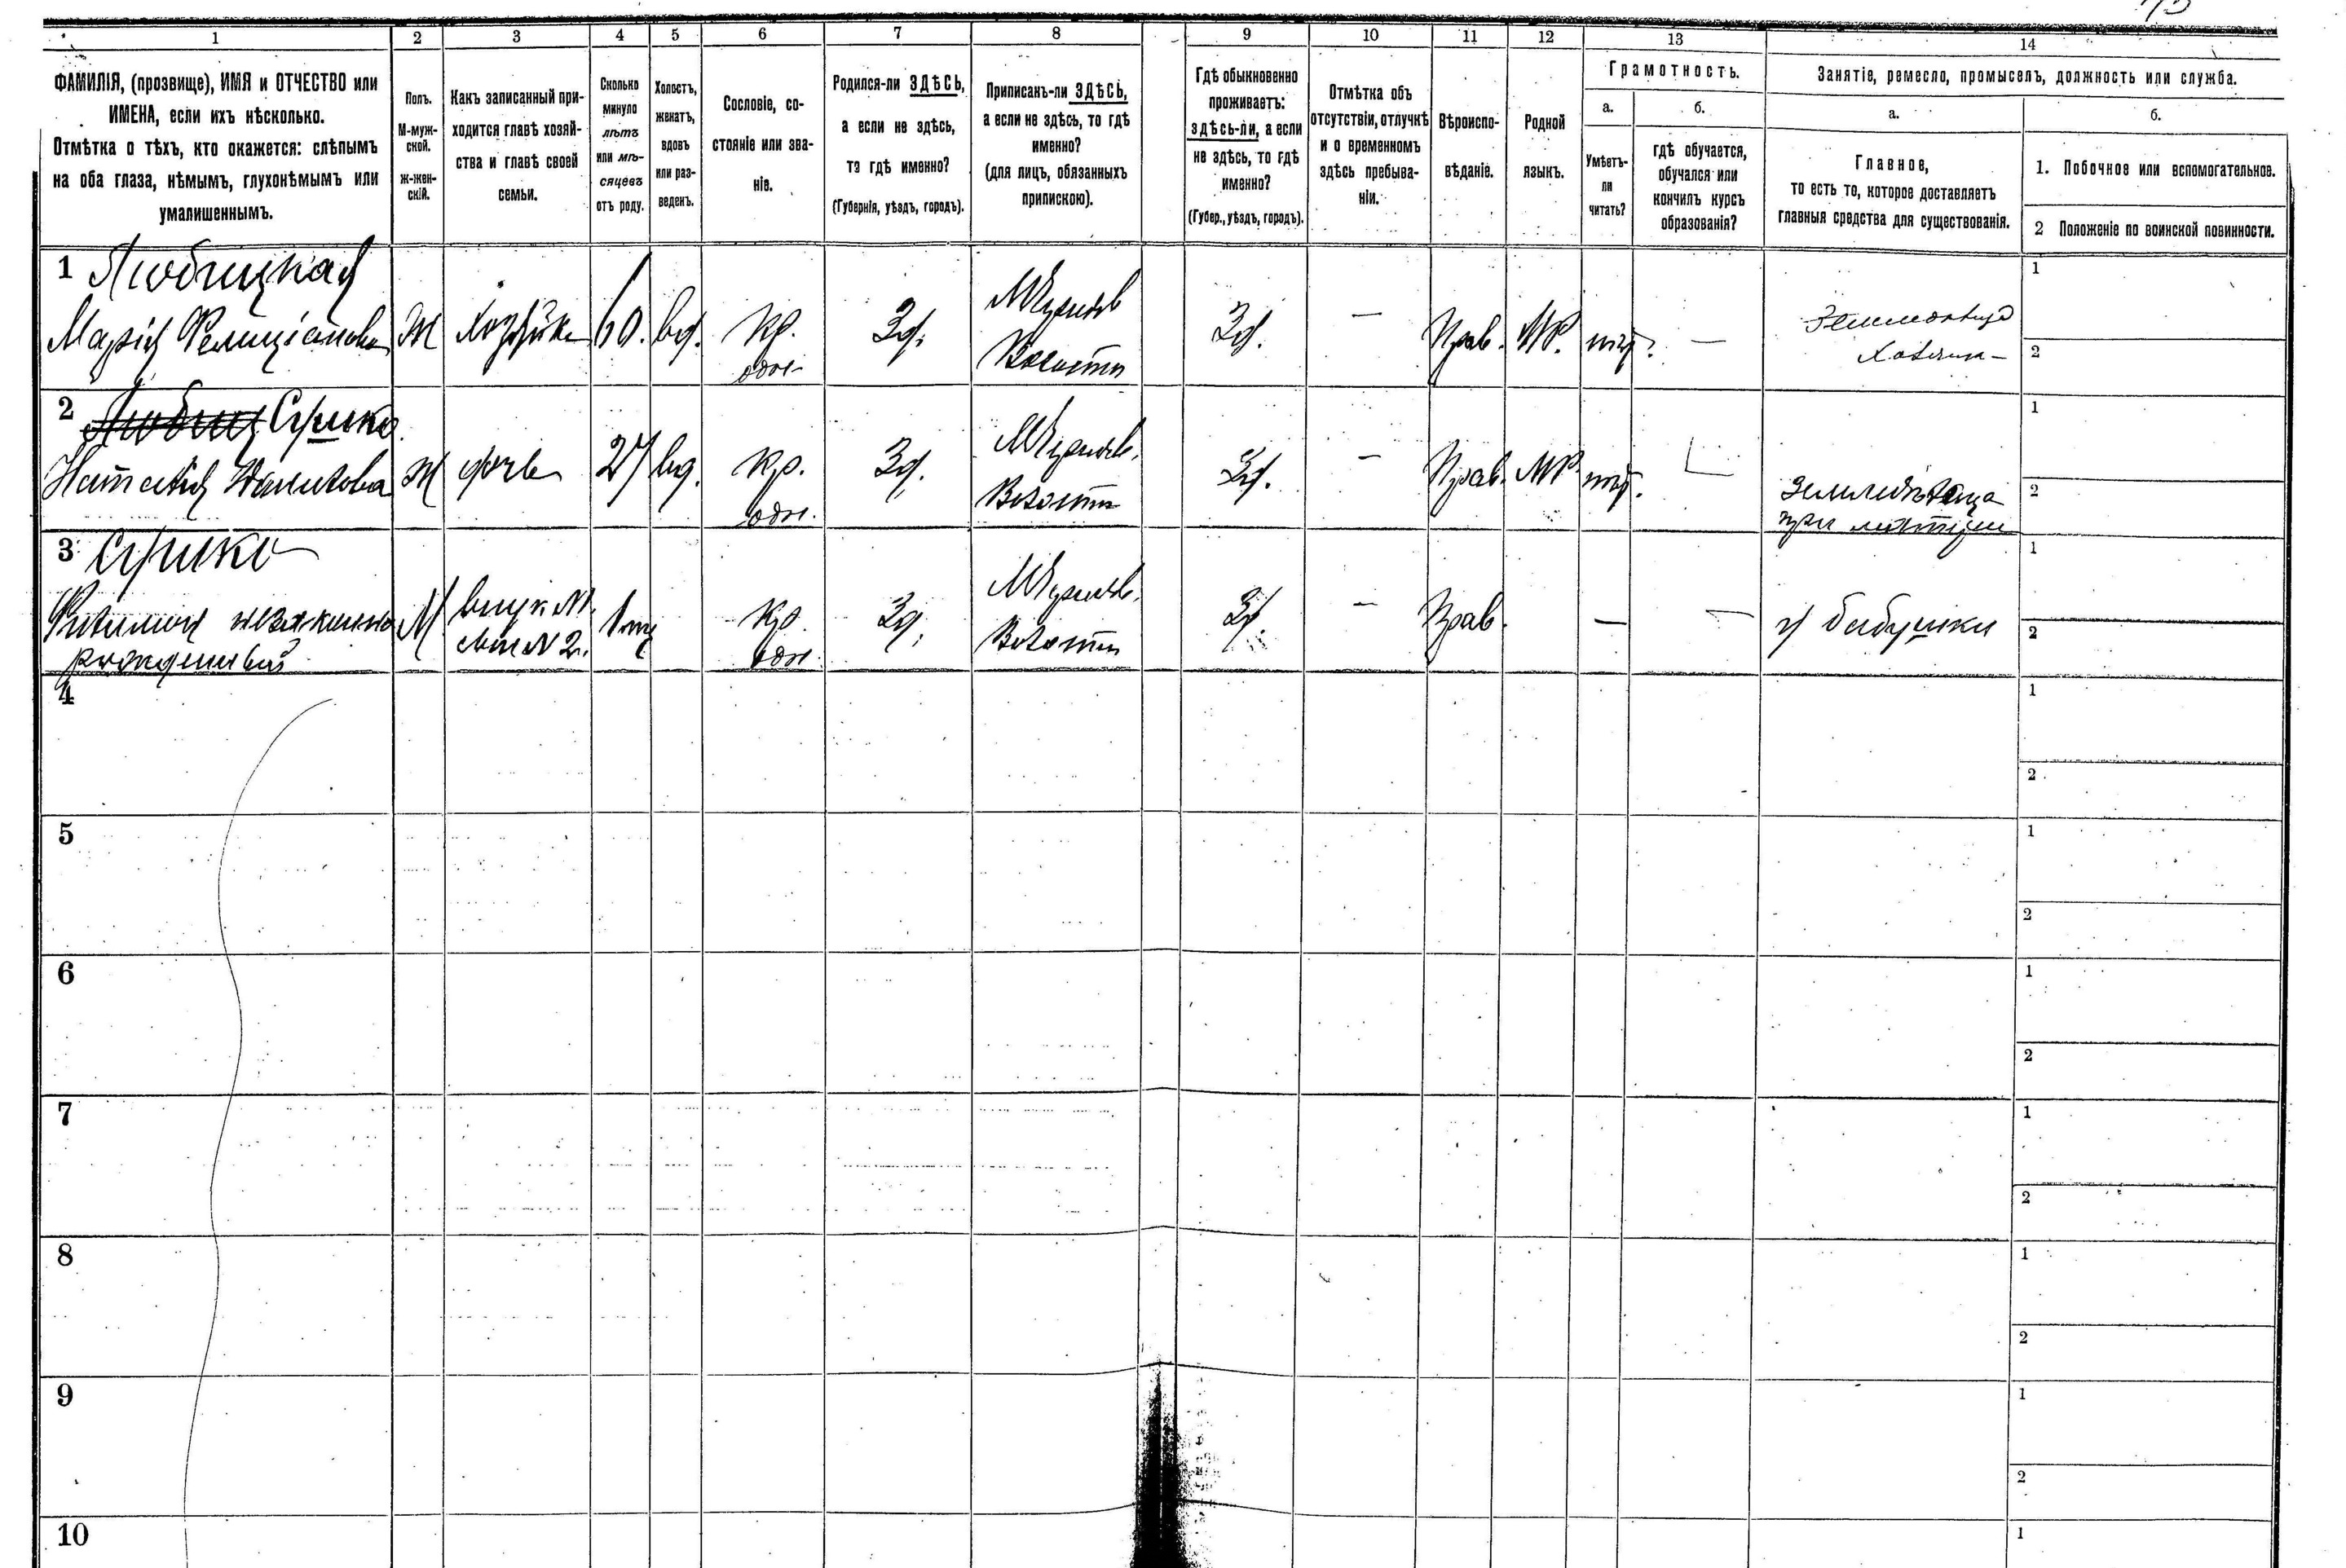 1
2
3
4
5
6
7
8
9
10
11
12
13
14
ФАМИЛІЯ, (прозвище), ИМЯ и ОТЧЕСТВО или
ИМЕНА, если ихъ нѣсколько.
Отмѣтка о тѣхъ, кто окажется: слѣпымъ
на оба глаза, нѣмымъ, глухонѣмымъ или
умалишеннымъ.
Полъ.
М-муж-
ской.
Ж-жен-
скій.
Какъ записанный при-
ходится главѣ хозяй-
ства и главѣ своей
семьи.
Сколько
минуло
лѣтъ
или мѣ-
сяцевъ
отъ роду.
Холостъ,
женатъ,
вдовъ
или раз-
веденъ.
Сословіе, со-
стояніе или зва-
ніе.
Родился-ли ЗДѢСЬ,
а если не здѣсь,
то гдѣ именно?
(Губернія, уѣздъ, городъ).
Приписанъ-ли ЗДѢСЬ,
а если не здѣсь, то гдѣ
именно?
(для лицъ, обязанныхъ
припискою).
Гдѣ обыкновенно
проживаетъ:
здѣсь-ли, а если
не здѣсь, то гдѣ
именно?
(Губер., уѣздъ, городъ).
Отмѣтка объ
отсутствіи, отлучкѣ
и о временномъ
здѣсь пребыва-
ніи.
Вѣроиспо-
вѣданіе.
Родной
языкъ.
Грамотность.
а.
Умѣетъ-
ли
читать?
б.
гдѣ обучается,
обучался или
кончилъ курсъ
образованія?
Занятіе, ремесло, промыселъ, должность или служба.
а.
Главное,
то есть то, которое доставляетъ
главныя средства для существованія.
б.
1. Побочное или вспомогательное.
2 Положеніе по воинской повинности.
1 Любицкая
Марія Фелиціанова Ж Хозяйка 60. вд. Кр. Зд. Волости Зд. — Прав. МР. —
1
2
2
Наталія Данилова Ж дочь 27 вд. Кр. Зд. Волости Зд. — Прав. МР.
при матери
1
2
3
рожденный М внук №1. сын №2. Кр. Зд. Волости Зд. — Прав. — — у бабушки
1
2
4
1
2
5
1
2
6
1
2
7
1
2
8
1
2
9
1
2
10
1